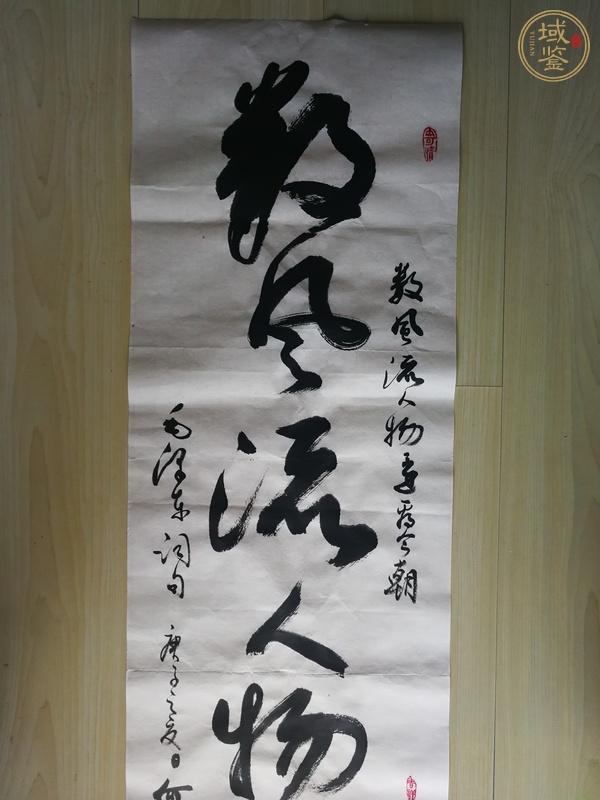 数風流人物
数風流人物还看今朝
毛泽东词句 庚子之夏日 何
域鉴
YUJIAN